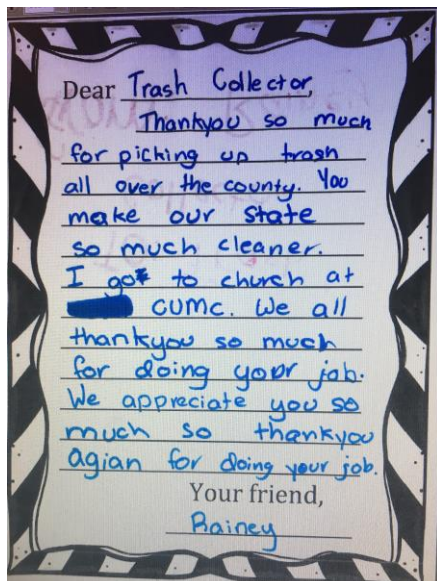 Dear Trash Collector,
Thankyou so much
for picking up trash
all over the county. You
make our state
so much cleaner.
I go to church at
CUMC. We all
thankyou so much
for doing your job.
We appreciate you so
much so thankyou
agian for doing your job.
Your friend,
Rainey